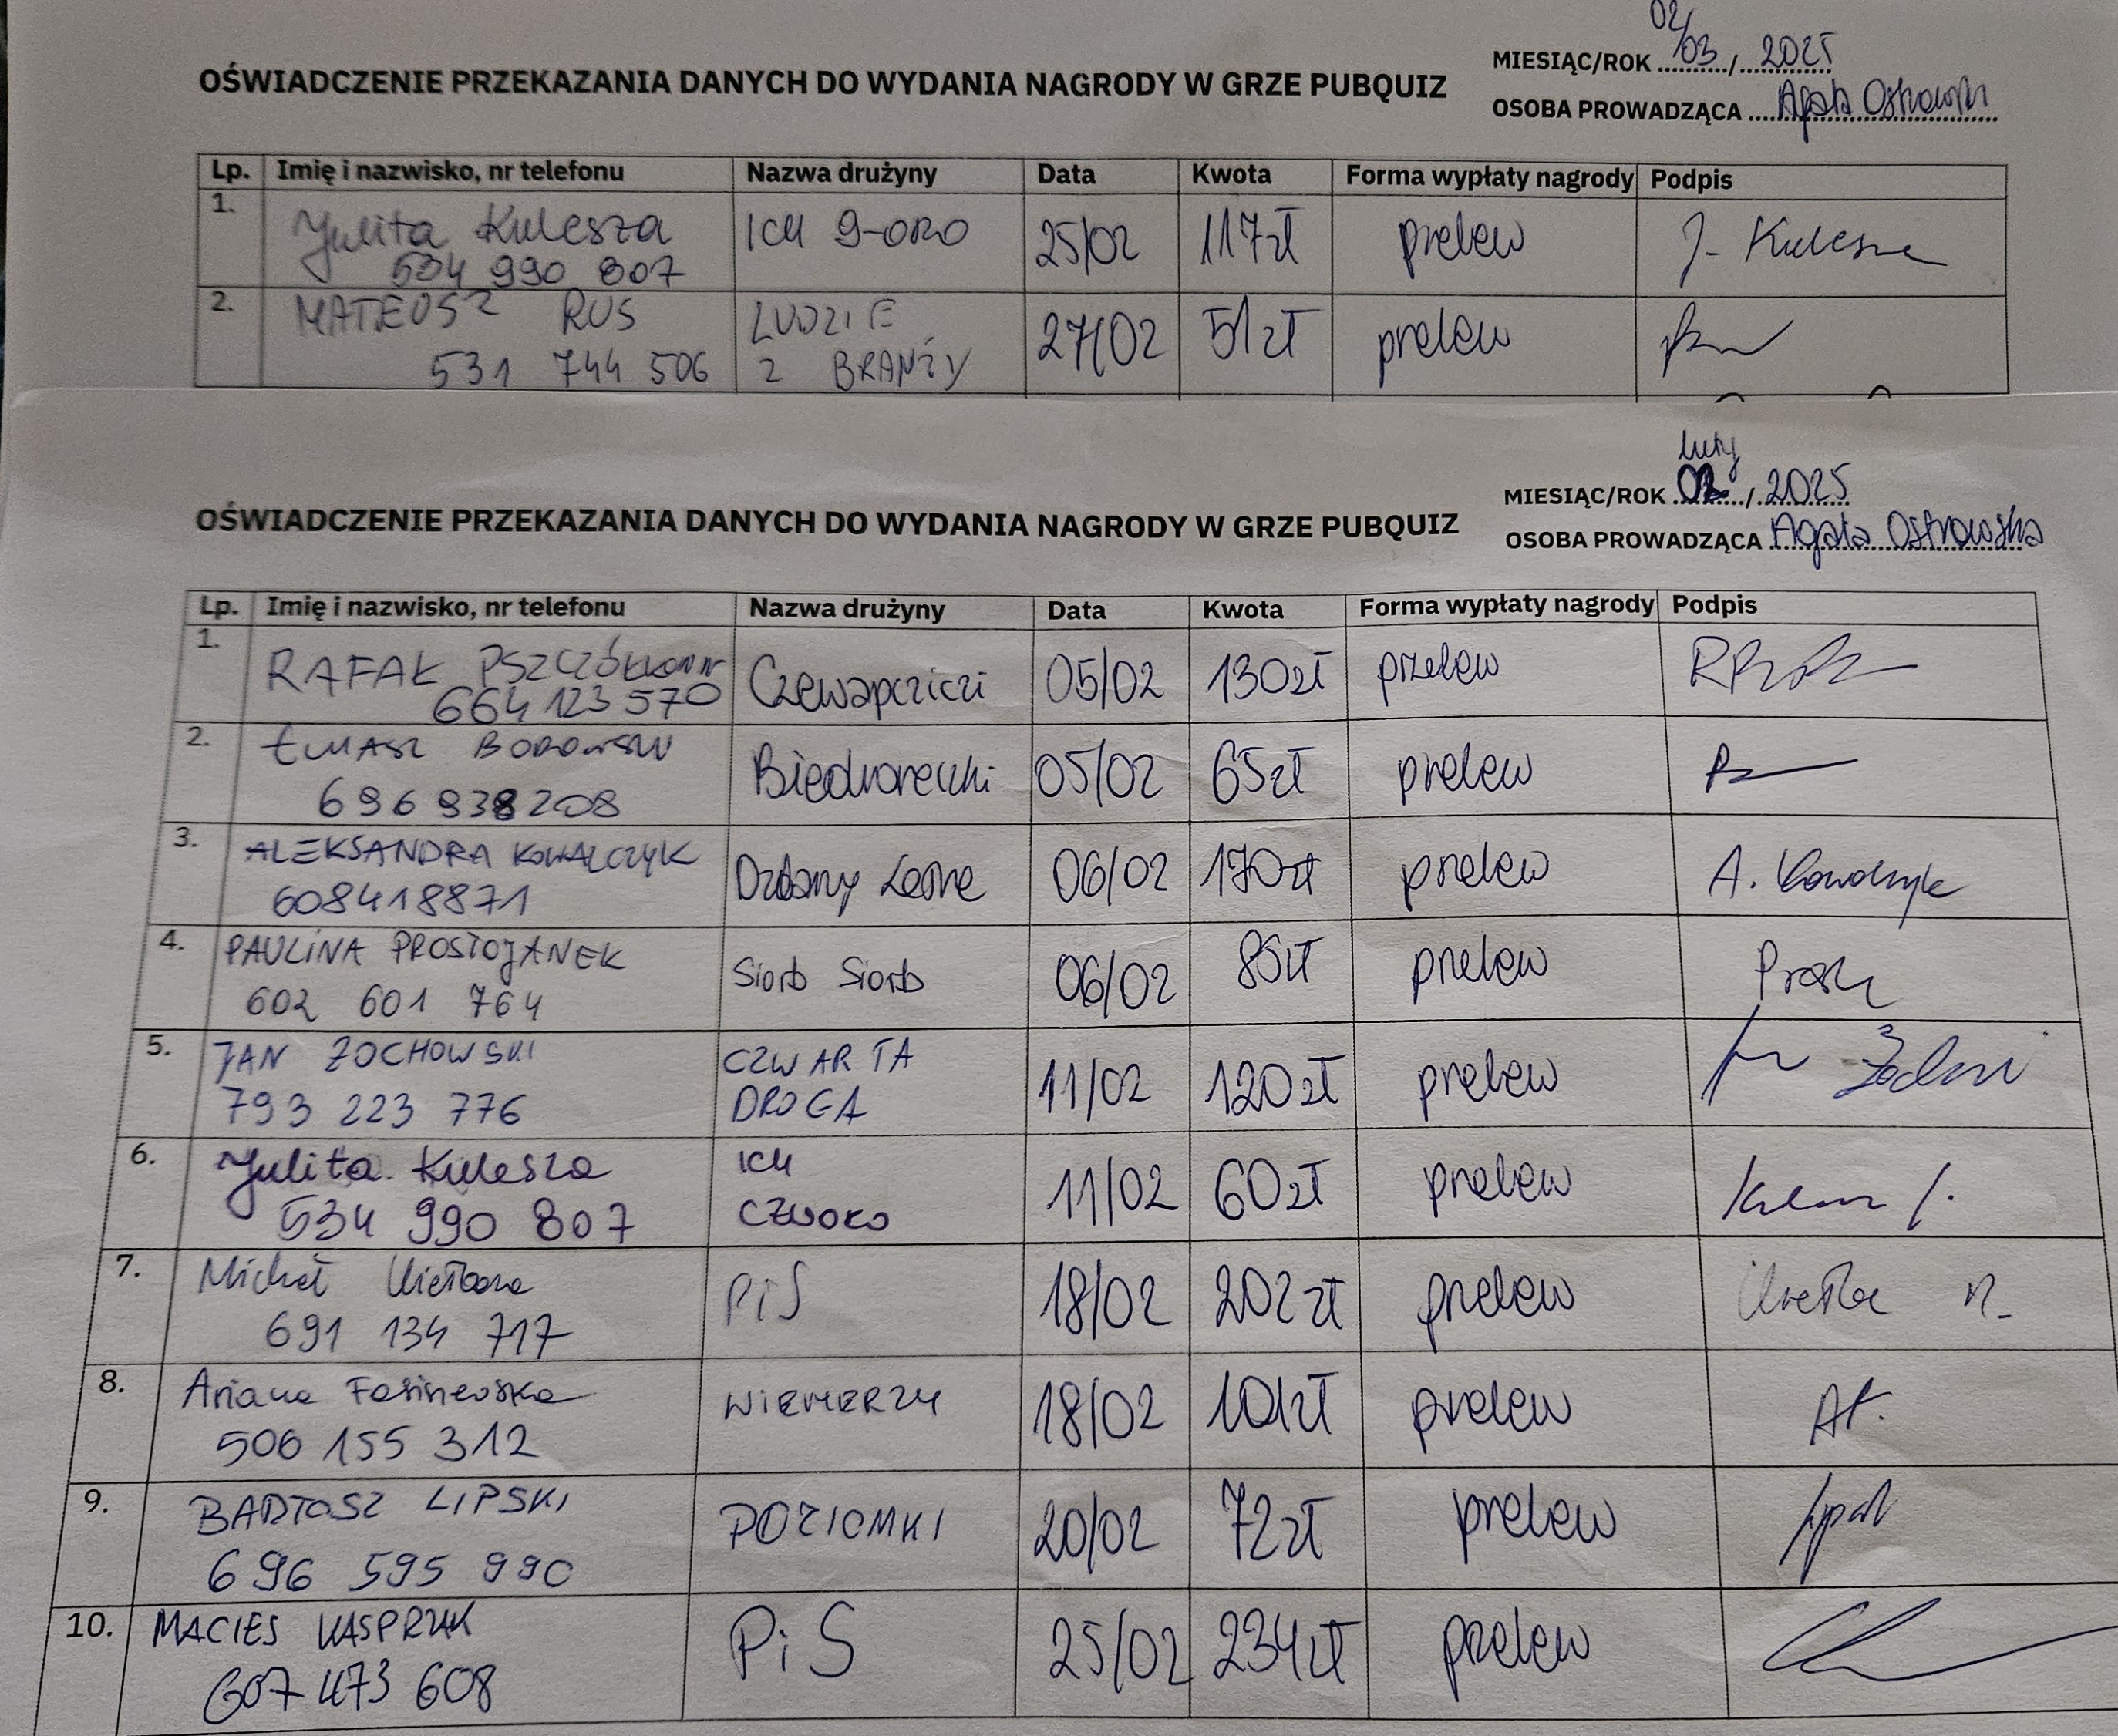 02/
MIESIĄC/ROK 03 / 2025
OŚWIADCZENIE PRZEKAZANIA DANYCH DO WYDANIA NAGRODY W GRZE PUBQUIZ
OSOBA PROWADZĄCA Agata Ostrowska
Lp. Imię i nazwisko, nr telefonu Nazwa drużyny Data Kwota Forma wypłaty nagrody Podpis
1. Julita Kulesza ICH 9-ORO 25/02 117zł przelew J. Kulesza
534 990 807
2. MATEUSZ RUS LUDZIE 27/02 51zł przelew
531 744 506 Z BRANŻY
luty
MIESIĄC/ROK 02 / 2025
OŚWIADCZENIE PRZEKAZANIA DANYCH DO WYDANIA NAGRODY W GRZE PUBQUIZ
OSOBA PROWADZĄCA Agata Ostrowska
Lp. Imię i nazwisko, nr telefonu Nazwa drużyny Data Kwota Forma wypłaty nagrody Podpis
1. RAFAŁ Czewapcziczi 05/02 130zł przelew
664 123 570
2. BOROWSKI 05/02 65zł przelew
696 938 208
3. ALEKSANDRA KOWALCZYK Dzbany Leśne 06/02 170zł przelew A. Kowalczyk
608418871
4. PAULINA PROSTOJANEK Siorb Siorb 06/02 85zł przelew
602 601 764
5. JAN ŻOCHOWSKI CZWARTA 11/02 120zł przelew
793 223 776 DROGA
6. Julita Kulesza ICH 11/02 60zł przelew
534 990 807 CZWORO
7. Michał PiS 18/02 202zł przelew
691 134 717
8. Ariana WIEMERZY 18/02 101zł przelew AF.
506 155 312
9. BARTOSZ LIPSKI POZIOMKI 20/02 72zł przelew
696 595 990
10. MACIEJ KASPRZAK PiS 25/02 234zł przelew
607 473 608